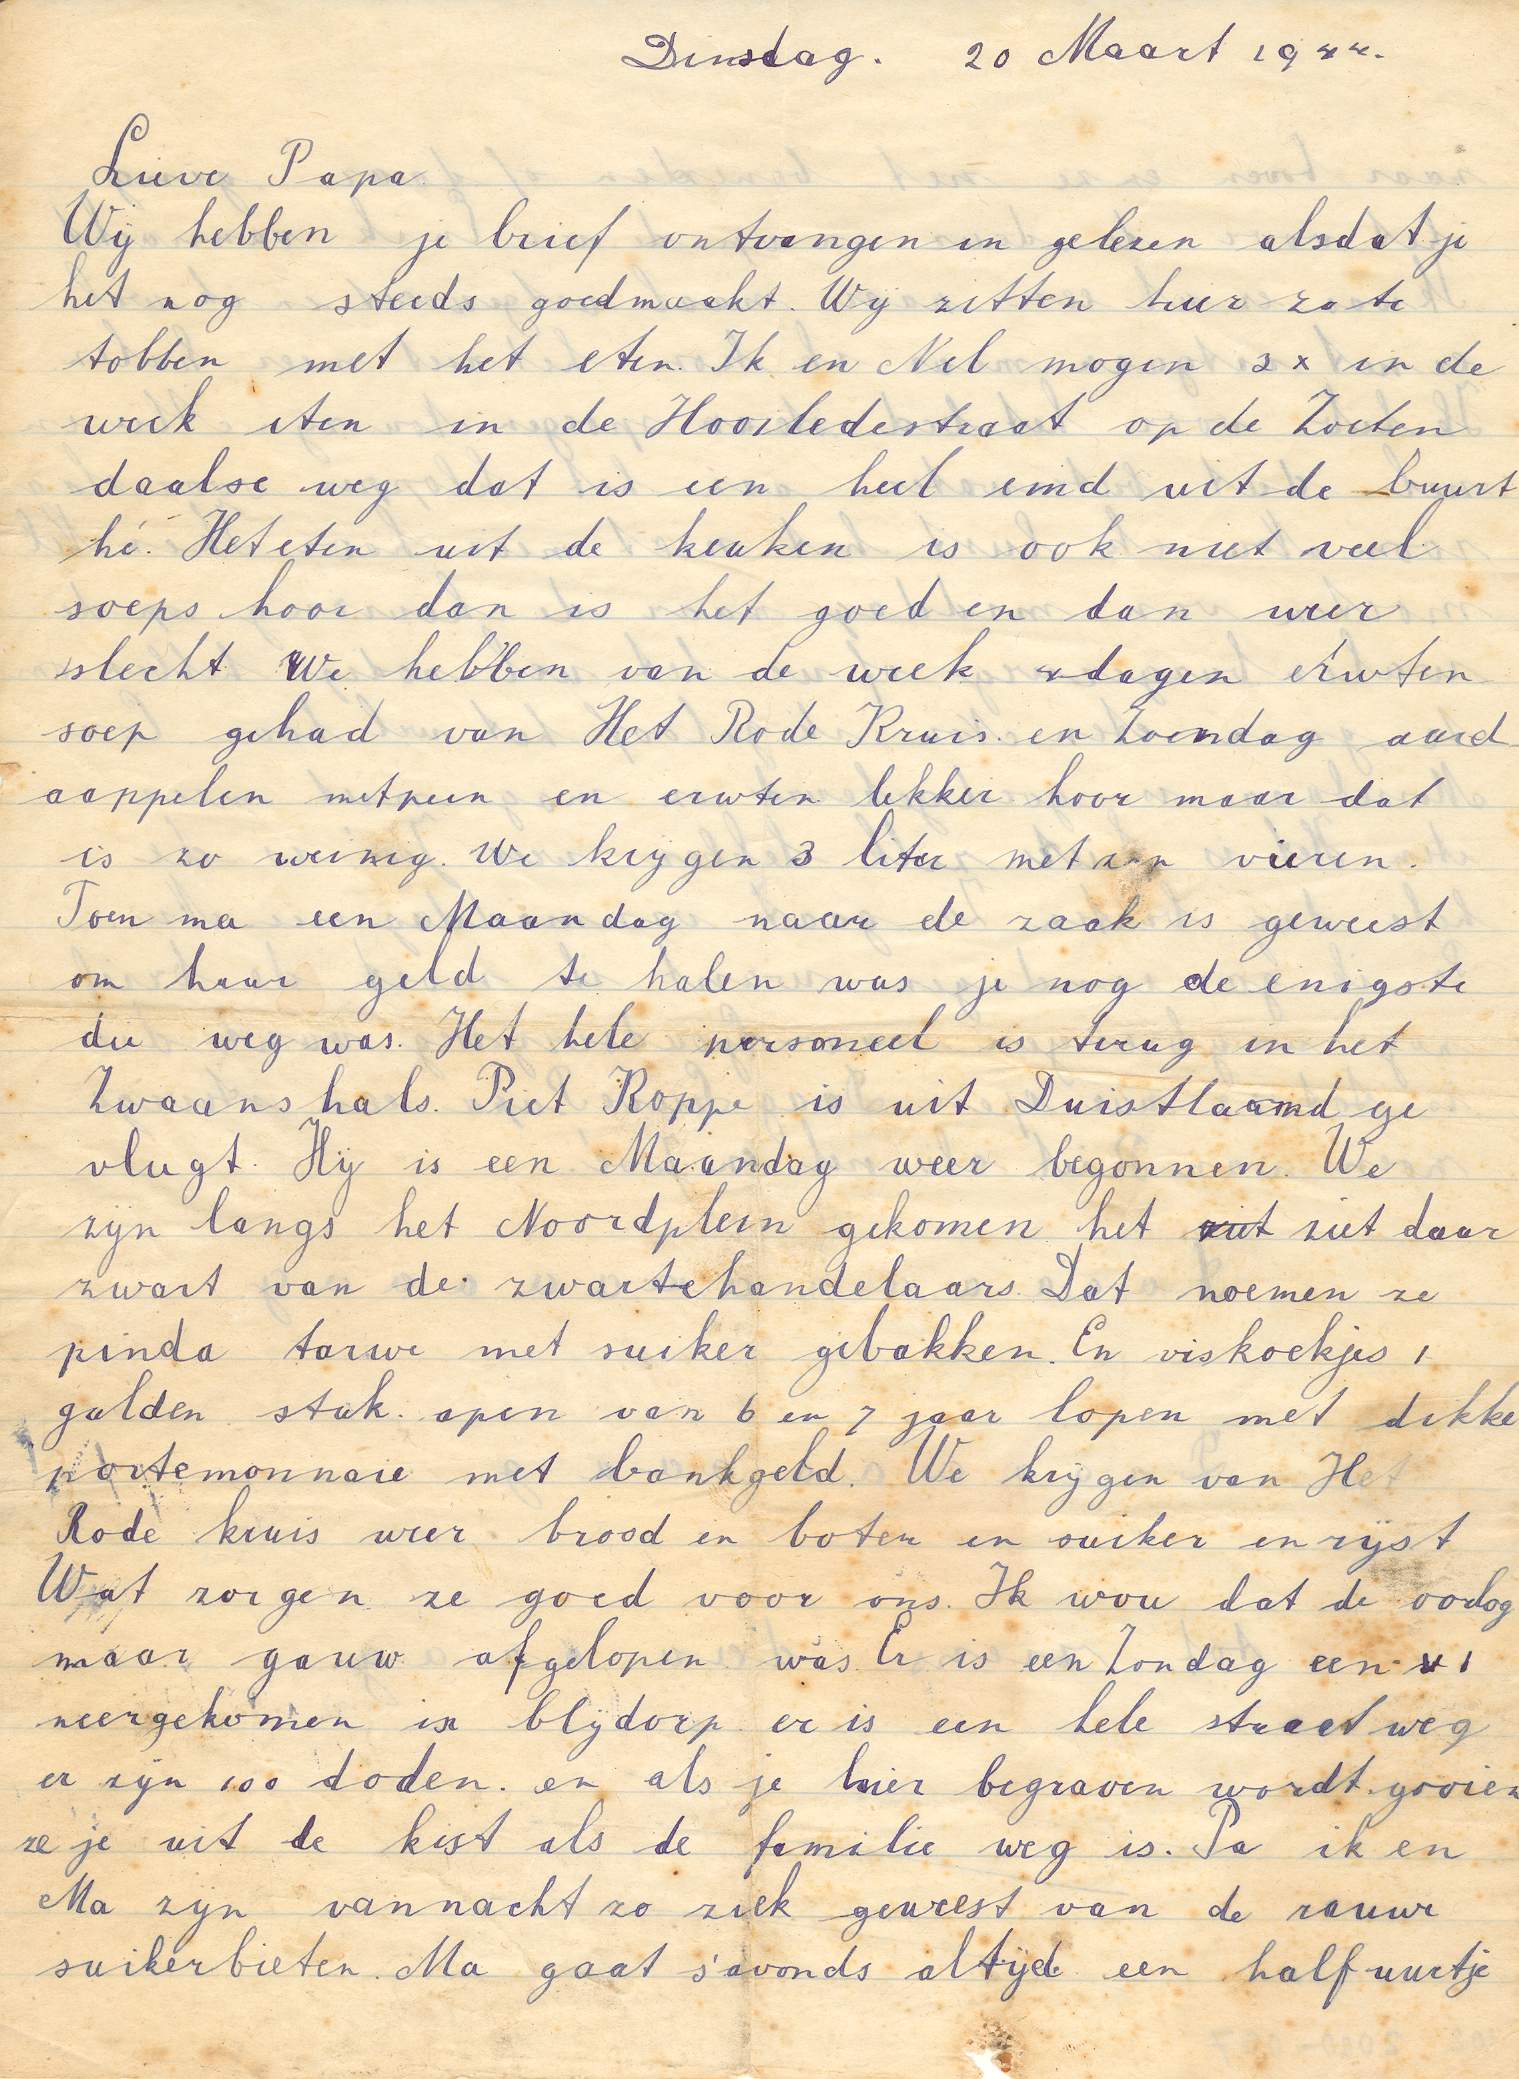 Dinsdag. 20 Maart 1944.
Lieve Papa
Wij hebben je brief ontvangen en gelezen alsdat je
het nog steeds goedmaakt. Wij zitten hier zo te
tobben met het eten. Ik en Nel mogen 2x in de
week eten in de Hooiledestraat op de Zoeten
daalse weg dat is een heel eind uit de buurt
hé. Het eten uit de keuken is ook niet veel
soeps hoor dan is het goed en dan weer
slecht We hebben van de week 4 dagen erwten
soep gehad van Het Rode Kruis en Zoendag aard
aappelen met peen en erwten lekker hoor maar dat
is zo weinig. We krijgen 3 liter met zen vieren.
Toen ma een Maandag naar de zaak is geweest
om haar geld te halen was je nog de enigste
die weg was. Het hele personeel is terug in het
Zwaanshals. Piet Koppe is uit Duistlaamd ge
vlugt. Hij is een Maandag weer begonnen. We
zijn langs het Noordplein gekomen het ziet ziet daar
zwart van de zwartehandelaars. Dat noemen ze
pinda tarwe met suiker gebakken. En viskoekjes 1
gulden stuk. apen van 6 en 7 jaar lopen met dikke
portemonnaie met bankgeld. We krijgen van Het
Rode kruis weer brood en boter en suiker en rijst
Wat zorgen ze goed voor ons. Ik wou dat de oorlog
maar gauw afgelopen was. Er is een Zondag een v1
neergekomen in blijdorp er is een hele straat weg
er zijn 100 doden. en als je hier begraven wordt gooien
ze je uit de kist als de familie weg is. Pa ik en
Ma zijn vannacht zo ziek geweest van de rauwe
suikerbieten. Ma gaat s'avonds altijd een half uurtje